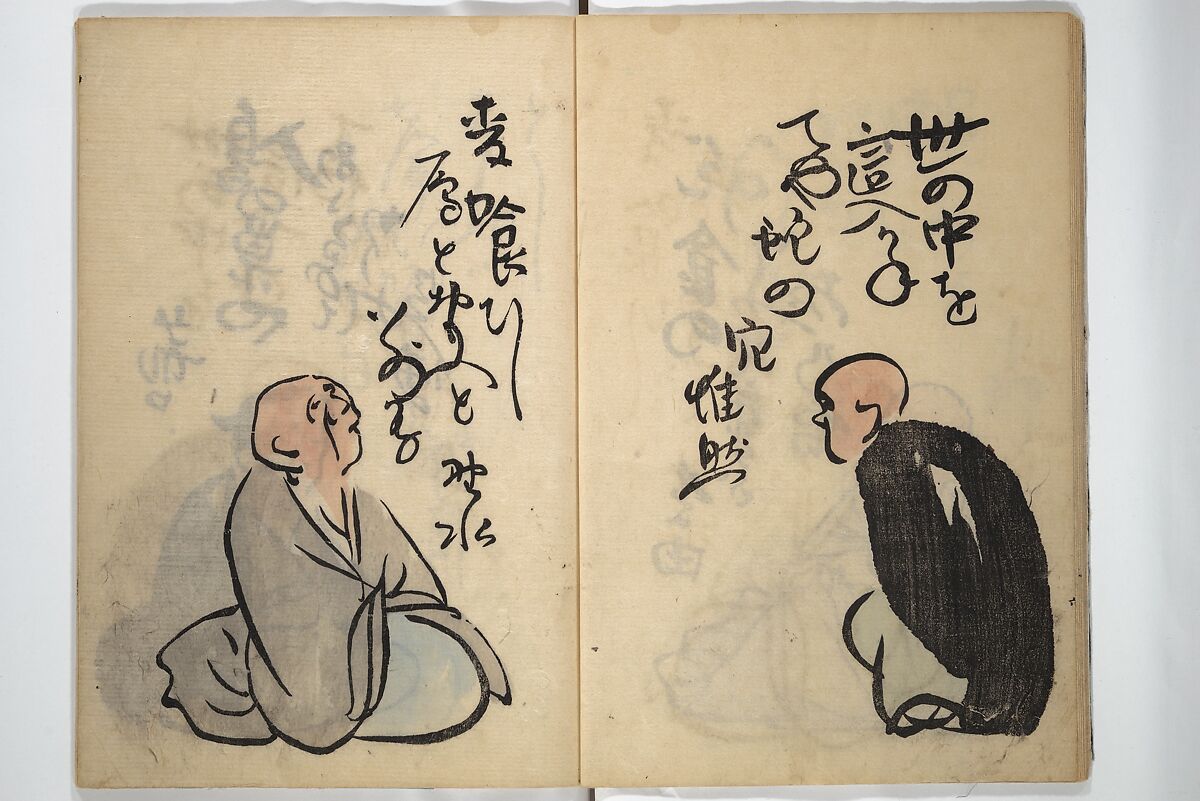 世の中を
這入かね
てや蛇の
穴
惟然
麦喰ひし
雁と思へと
別哉
野水